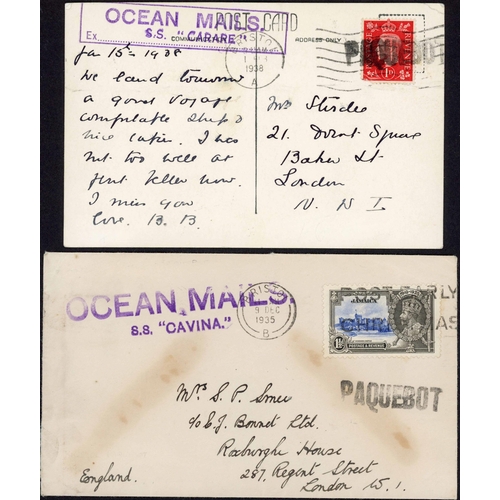 OCEAN MAILS.
Ex S.S. "CARARE"
POST CARD
ADDRESS ONLY
1938
A
PAQUEBOT
REVENUE
Jan 15th 1938
We land tomorrow
a good voyage
comfortable ship &
nice cabin. I was
not too well at
first better now.
I miss you
love. B. B.
Mrs
21. Dorset Square
Baker St
London
N. W. 1
OCEAN MAILS.
S.S. "CAVINA."
BRISTOL
9 DEC
1935
B
POSTAGE & REVENUE
1½
PAQUEBOT
Mrs S. P.
c/o E. J. Bonnet Ltd.
Roxburghe House
287, Regent Street
London W. 1.
England.